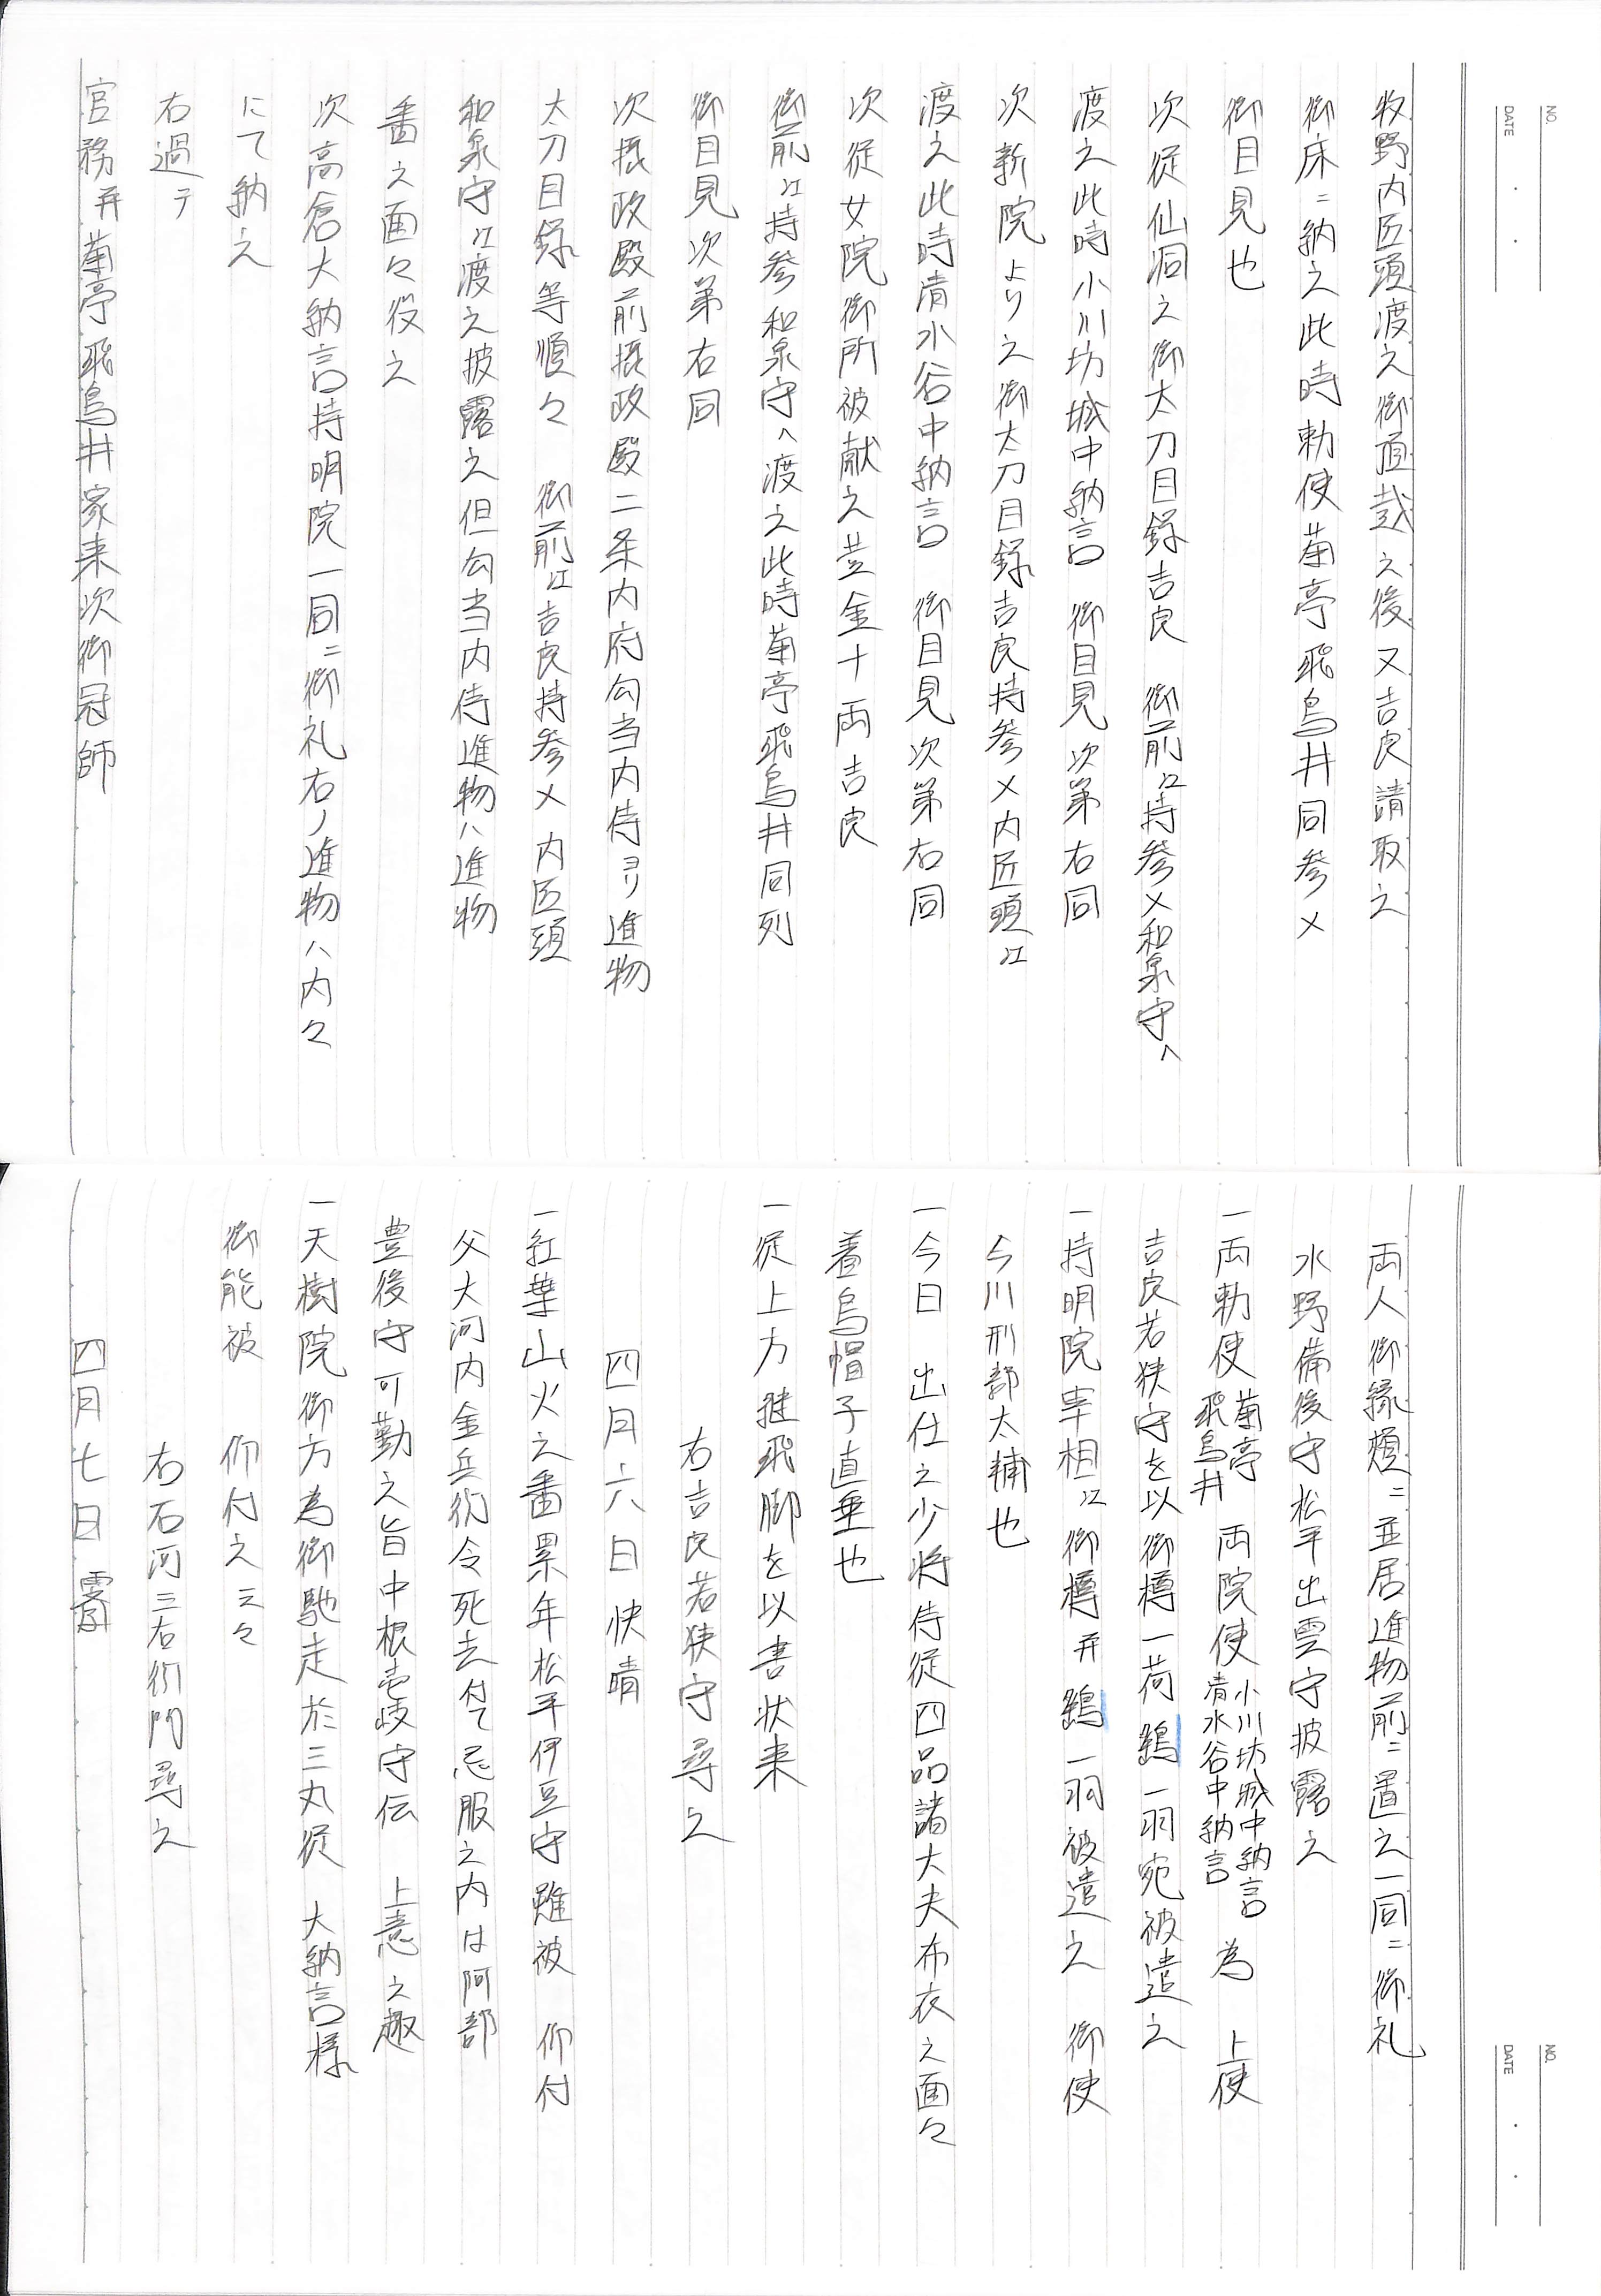 NO.
DATE
牧野内匠頭渡之御頂戴之後又吉良請取之
御床ニ納之此時勅使菊亭飛鳥井同参〆
御目見也
次従仙洞之御太刀目録吉良 御前江持参〆和泉守へ
渡之此時小川坊城中納言 御目見次第右同
次新院より之御太刀目録吉良持参〆内匠頭江
渡之此時清水谷中納言 御目見次第右同
次従女院御所被献之芸金十両吉良
御前江持参和泉守へ渡之此時菊亭飛鳥井同列
御目見次第右同
次摂政殿前摂政殿二条内府勾当内侍ヨリ進物
太刀目録等順々 御前江吉良持参〆内匠頭
和泉守江渡之披露之但勾当内侍進物ハ進物
番之面々役之
次高倉大納言持明院一同ニ御礼右ノ進物ハ内々
にて納之
右過テ
官務并菊亭飛鳥井家来次御冠師
NO.
DATE
両人御縁頬ニ並居進物前ニ置之一同ニ御礼
水野備後守松平出雲守披露之
一両勅使 菊亭 飛鳥井 両院使 小川坊城中納言 清水谷中納言 為 上使
吉良若狭守を以御樽一荷鶴一羽宛被遣之
一持明院宰相江御樽并鶴一羽被遣之 御使
今川刑部太輔也
一今日 出仕之少将侍従四品諸大夫布衣之面々
着烏帽子直垂也
一従上方継飛脚を以書状来
右吉良若狭守尋之
四月六日 快晴
一紅葉山火之番累年松平伊豆守雖被 仰付
父大河内金兵衛令死去付て忌服之内は阿部
豊後守可勤之旨中根壱岐守伝 上意之趣
一天樹院御方為御馳走於三丸従 大納言様
御能被 仰付之云々
右石河三右衛門尋之
四月七日 霽